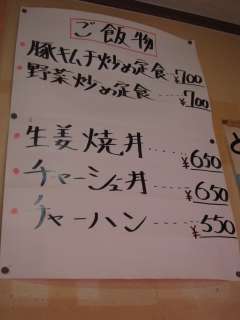 ご飯物
豚キムチ炒め定食 ¥700
野菜炒め定食 ¥700
生姜焼丼 ¥650
チャーシュー丼 ¥650
チャーハン ¥550
と